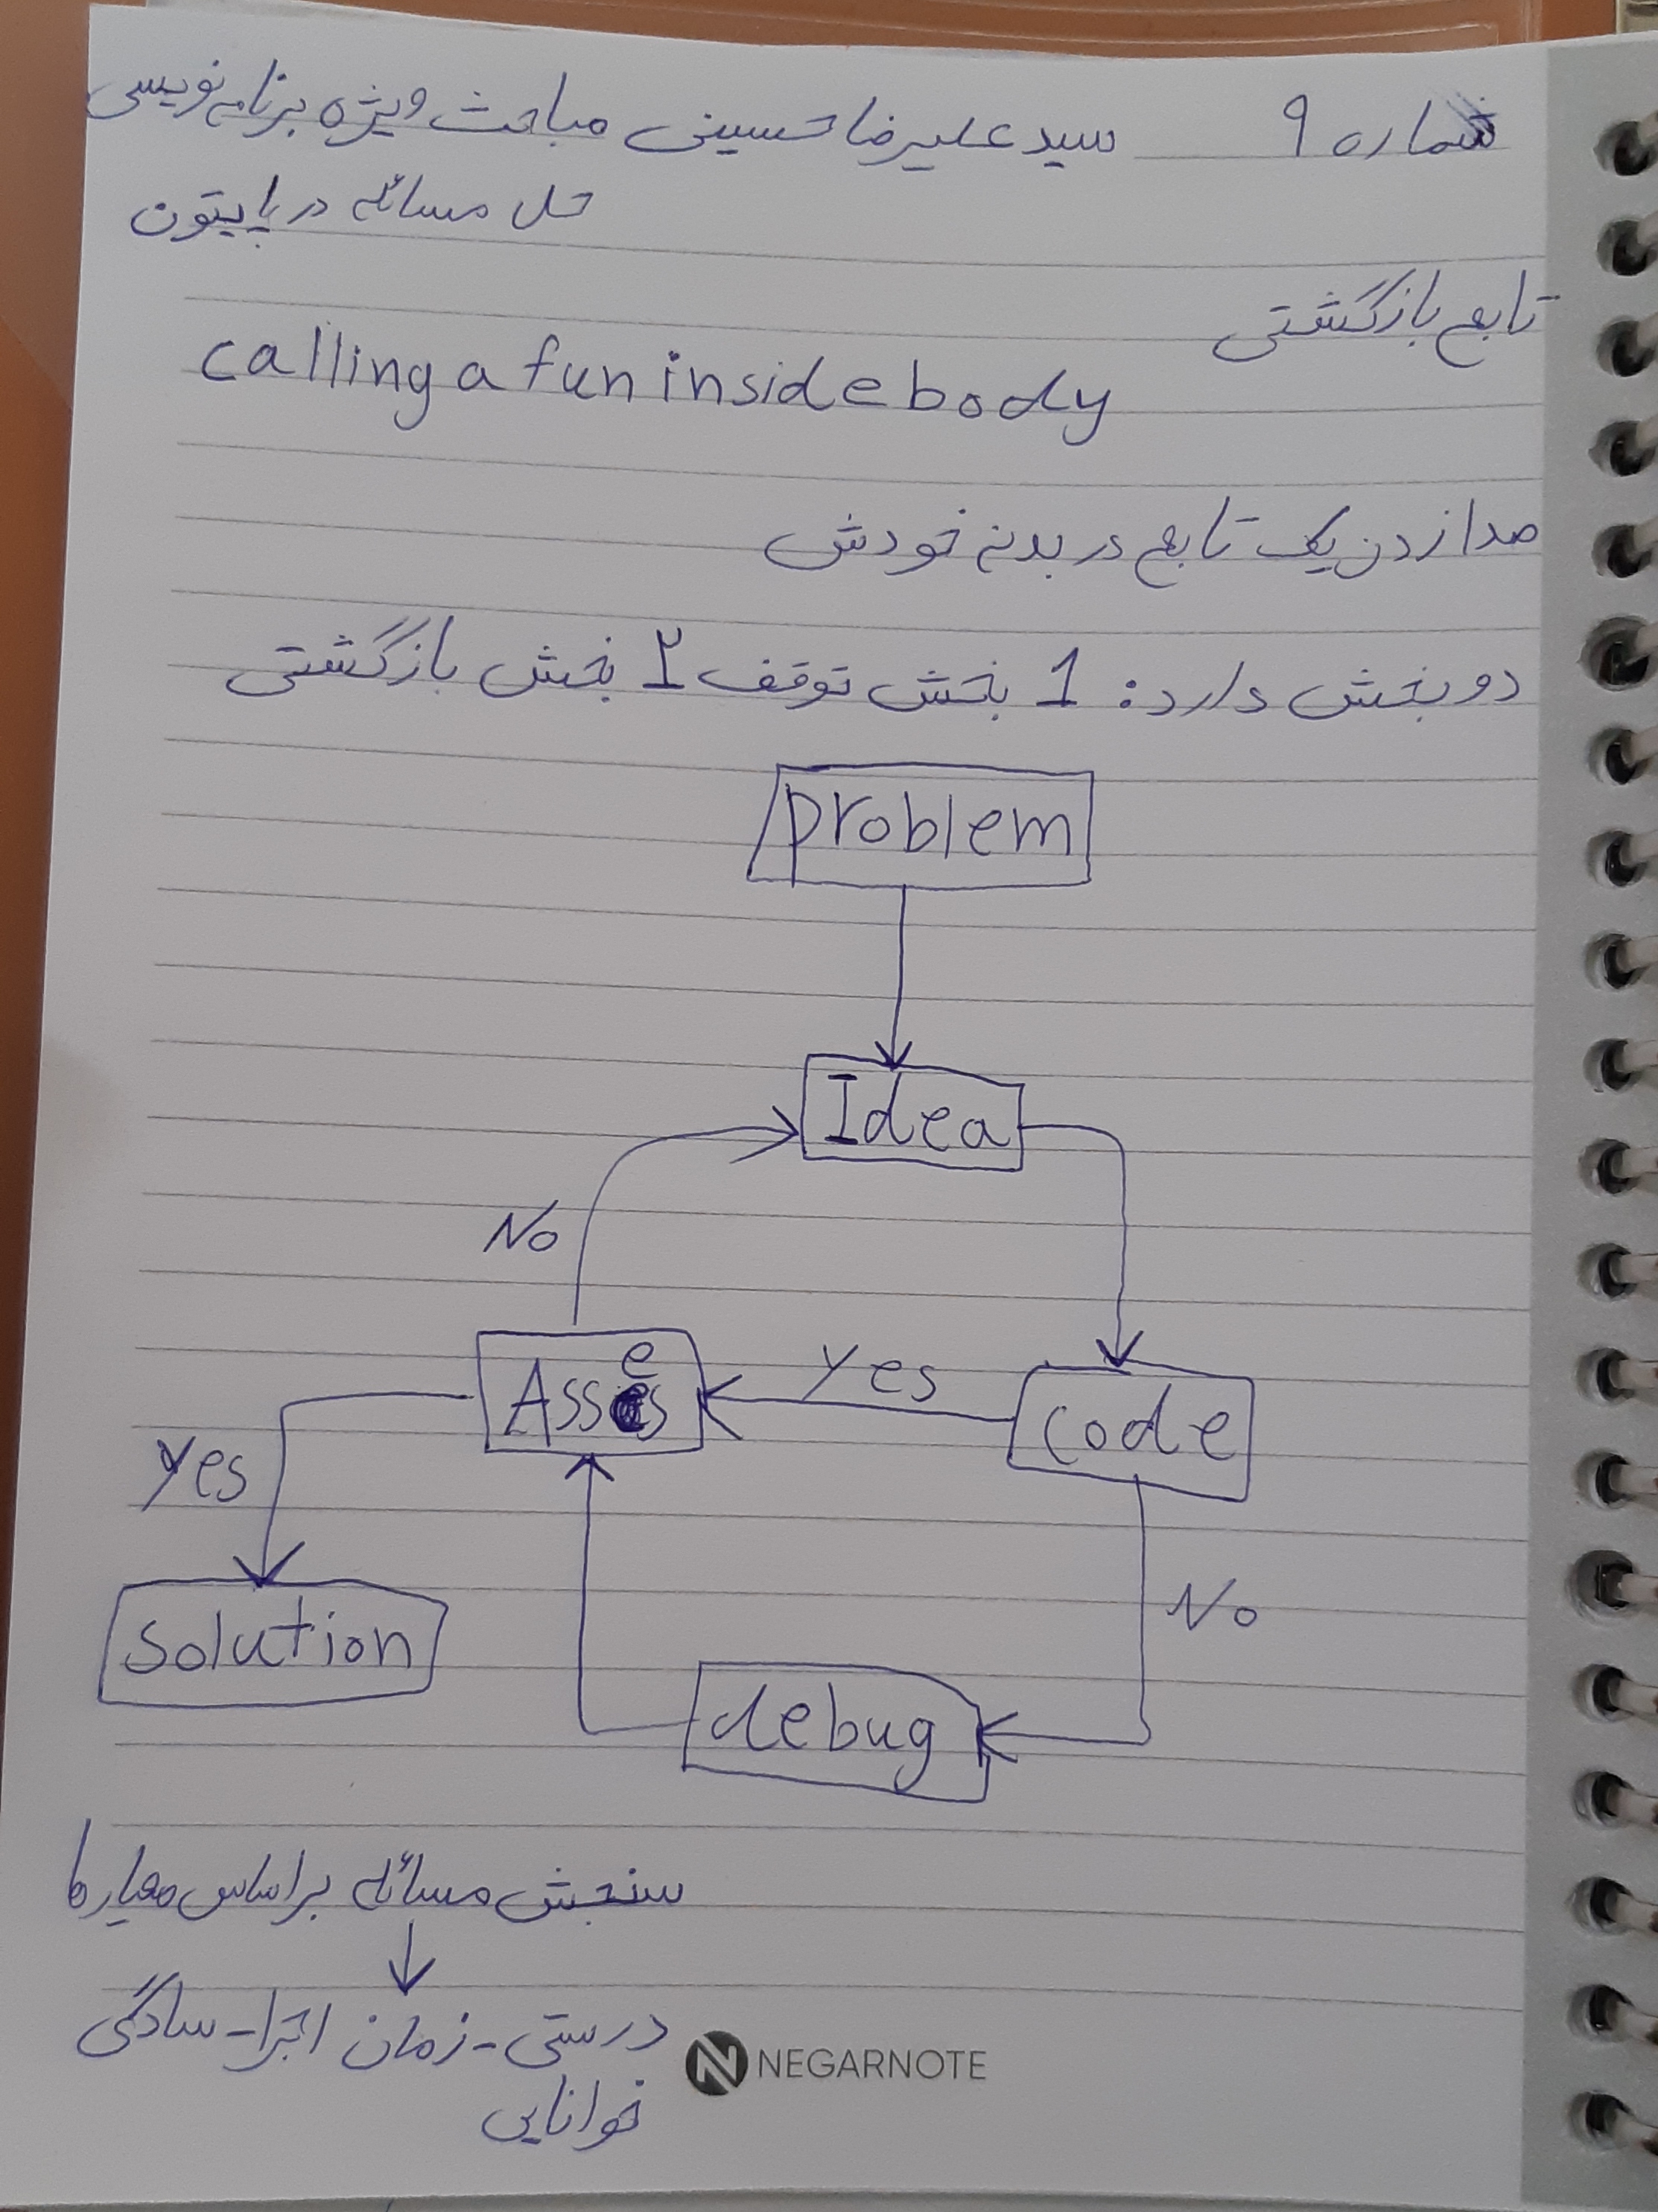 شماره ۹ سید علیرضا حسینی مباحث ویژه برنامه نویسی
حل مسائله در پایتون
تابع بازگشتی
calling a fun inside body
صدا زدن یک تابع در بدنه خودش
دو بخش دارد: 1 بخش توقف ۲ بخش بازگشتی
problem
Idea
No
Asses
Yes
code
Yes
No
solution
debug
سنجش مسائله بر اساس معیارها
درستی - زمان اجرا - سادگی
خوانایی
NEGARNOTE